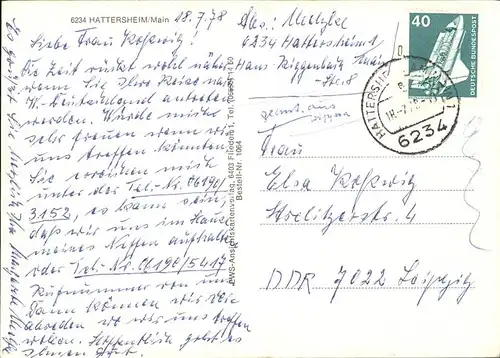 6234 HATTERSHEIM/Main
18.7.78
Liebe Frau Koßwig!
Die Zeit rückt wohl näher
wenn Sie Ihre Reise nach
W. Deutschland antreten
werden. Würde mich
sehr freuen wenn wir
uns treffen könnten.
Sie erreichen mich
unter der Tel-Nr. 06190/
3152, es kann sein,
daß wir uns im Hause
meines Neffen aufhalten
oder Tel-Nr. 06190/5417
Rufnummer von uns
Dann können wir die
wo wir uns treffen
wollen. Hoffentlich geht es
Ihnen gut.
Es grüßt Sie herzlich Ihre
EWS-Ansichtskartenverlag, 6403 Flieden 1, Tel.
Bestell-Nr. 1064
Abs.:
6234 Hattersheim 1
Hans Riggenbach
Str. 8
40
DEUTSCHE BUNDESPOST
HATTERSHEIM
18.-7.78
6234
Frau
Elsa Koßwig
Strelitzerstr. 4
DDR 7022 Leipzig